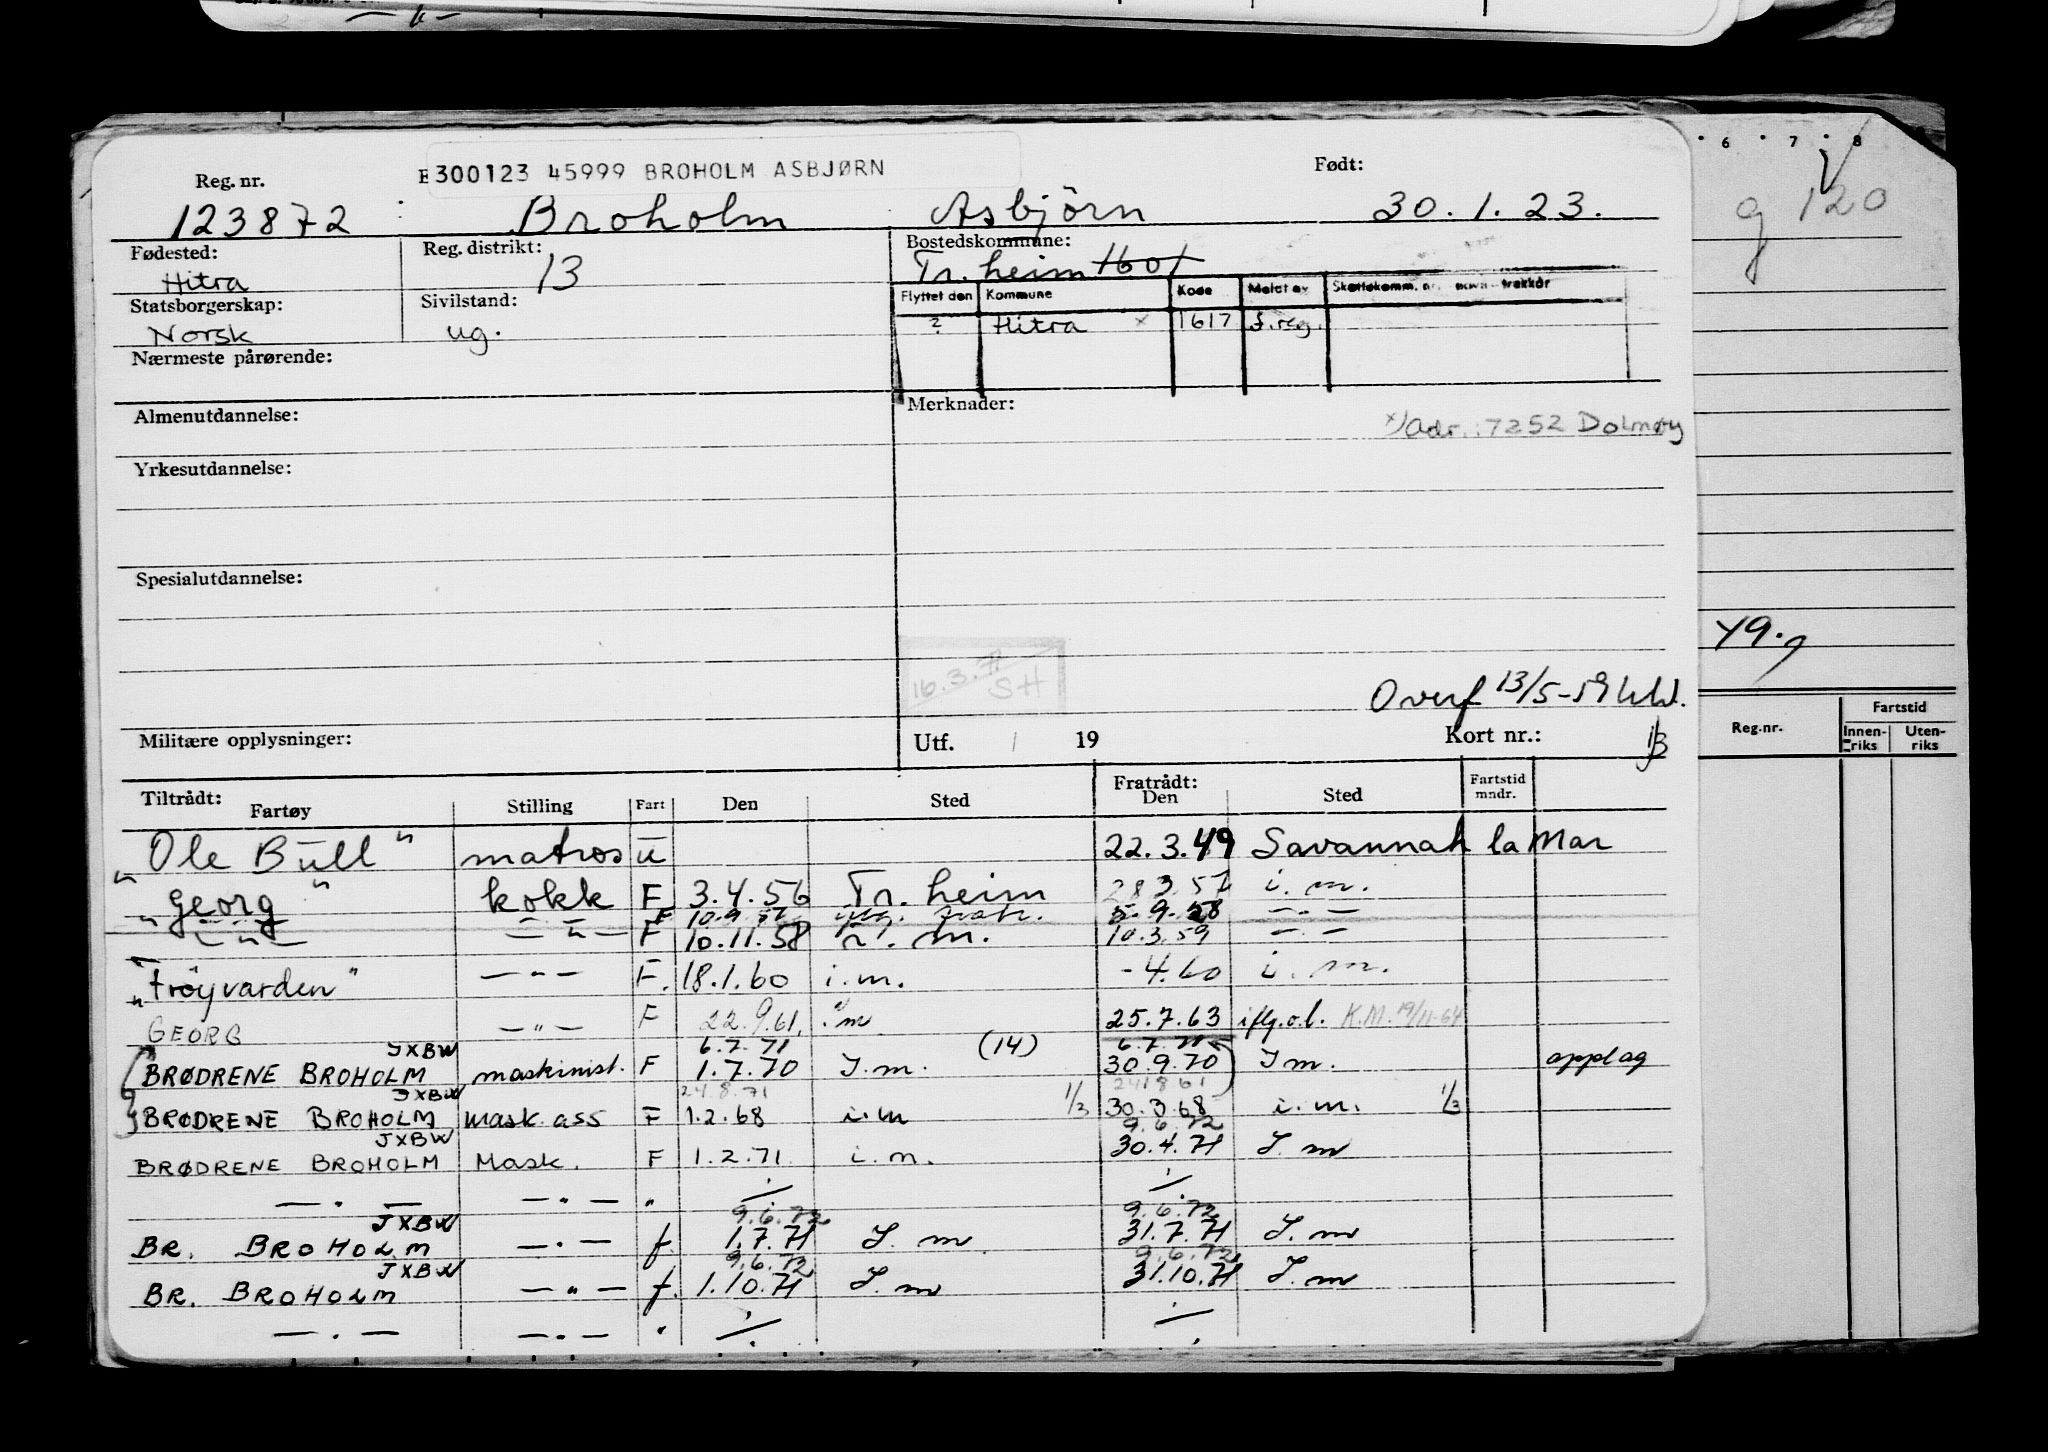 Reg. nr.
300123 45999 BROHOLM ASBJØRN
Født:
123872 Broholm Asbjörn 30.1.23.
Fødested: Hitra
Reg. distrikt: 13
Bostedskommune: Tr.heim 1601
Statsborgerskap: Norsk
Sivilstand: ug.
Flyttet den Kommune Kode Meldt av Skattekomm. nr.
? Hitra x 1617 f.reg.
Nærmeste pårørende:
Almenutdannelse:
Merknader:
x) Adr.: 7252 Dolmøy
Yrkesutdannelse:
Spesialutdannelse:
16.3.71
SH
Overf 13/5-59
Militære opplysninger:
Utf. / 19
Kort nr.:
Tiltrådt:
Fratrådt:
Fartøy Stilling Fart Den Sted Den Sted Fartstid mndr.
"Ole Bull" matros u 22.3.49 Savannah la Mar
"Georg" kokk F 3.4.56 Tr.heim 28.3.57 i.m.
F 10.9.57 5.9.58 — . —
" — " — — " — F 10.11.58 i.m. 10.3.59 — " —
"Frøyvarden" — " — F. 18.1.60 i.m. -4.60 i.m.
GEORG — " — F 22.9.61. i/m 25.7.63 iflg.o.l. K.M. 19/11-64
JXBW 6.7.71 (14) 6.7.71
BRØDRENE BROHOLM maskinist. F 1.7.70 I.m. 30.9.70 I m. opplag
JXBW 24.8.71
BRØDRENE BROHOLM Mask. ass F 1.2.68 i.m 1/3 30.3.68 i.m. 1/3
JXBW 9.6.72
BRØDRENE BROHOLM Mask. F 1.2.71 i.m. 30.4.71 I.m
— " — — " — " ./. ./.
JXBW 9.6.72 9.6.72
BR. BROHOLM — " — f 1.7.71 I.m 31.7.71 I.m
JXBW 9.6.72 9.6.72
BR. BROHOLM — " — f. 1.10.71 I.m 31.10.71 I.m
— " — — " — " ./. ./.
6 7 8
g 120
49.
Reg.nr. Fartstid
Innenriks Utenriks